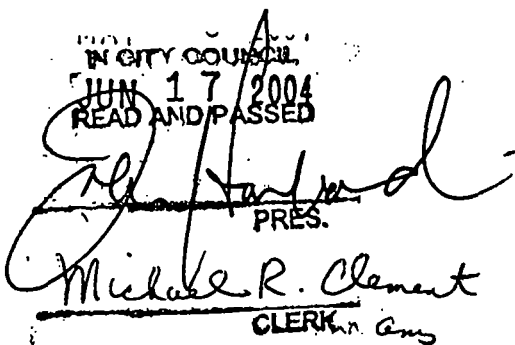 IN CITY COUNCIL
JUN 17 2004
READ AND PASSED
PRES.
Michael R. Clement
CLERK